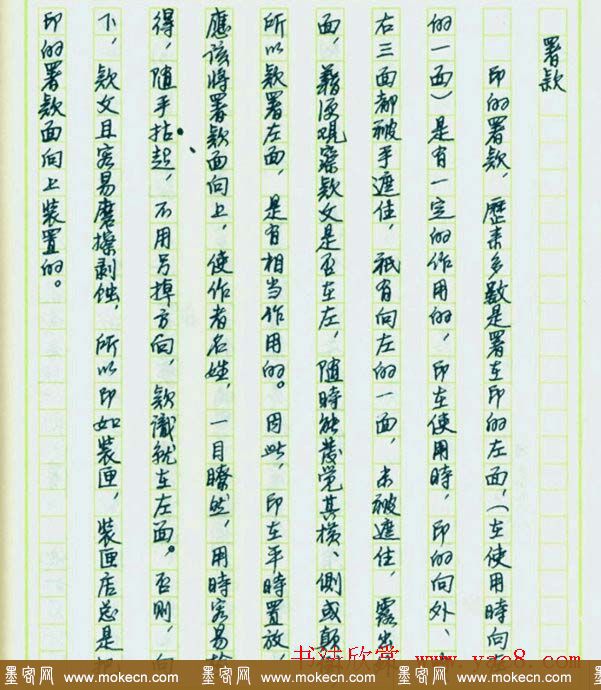 署款
印的署款，歷来多数是署在印的左面，（在使用時向
的一面）是有一定的作用的，印在使用時，印的向外、
右三面都被手遮住，祇有向左的一面，未被遮住，露出
面，藉便观察款文是否在左，随時能发觉其横、側或顛
所以款署左面，是有相当作用的。因此，印在平時置放，
應该将署款面向上，使作者名姓，一目瞭然，用時容易
得，随手拈起，不用另掉方向，款識就在左面。否則，向
下，款文且容易磨擦剥蝕，所以印如装匣，装匣店总是把
印的署款面向上装置的。
书法欣赏 www.yac8.com
墨客网 www.mokecn.com 墨客网 www.mokecn.com 墨客网 www.mokecn.com